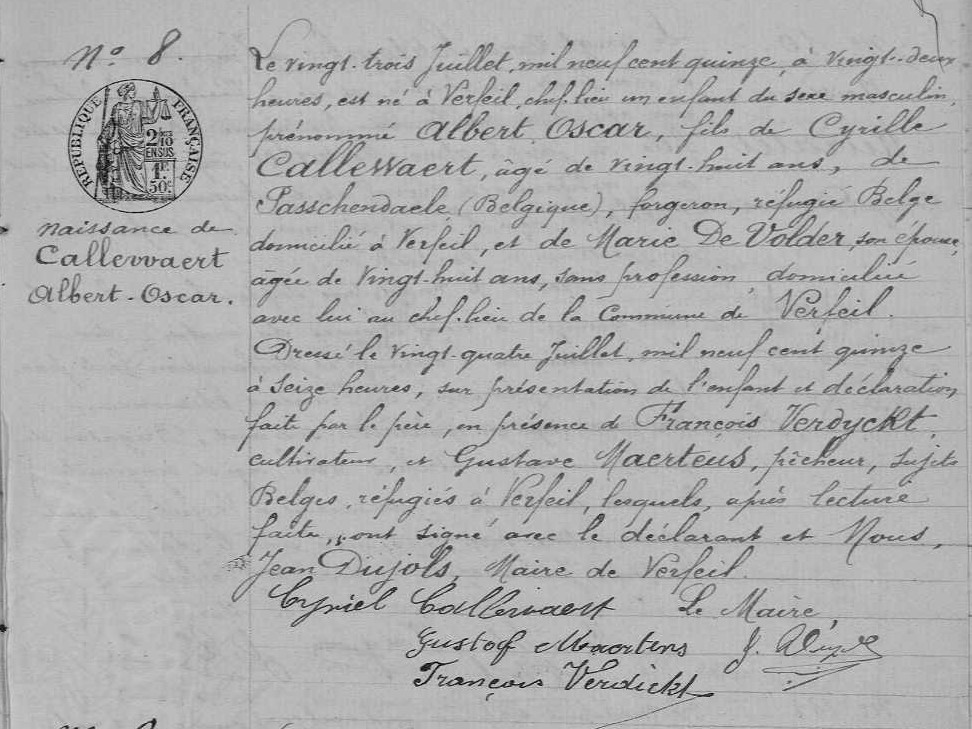 N° 8.
RÉPUBLIQUE FRANÇAISE
2/10mes
EN SUS
1F.
50c.
Naissance de
Callewaert
Albert-Oscar.
Le vingt-trois Juillet, mil neuf cent quinze, à vingt-deux
heures, est né à Verfeil, chef-lieu un enfant du sexe masculin,
prénommé Albert Oscar, fils de Cyrille
Callewaert, âgé de vingt-huit ans, de
Passchendaele (Belgique), forgeron, réfugié Belge
domicilié à Verfeil, et de Marie De Volder, son épouse,
âgée de vingt-huit ans, sans profession, domiciliée
avec lui au chef-lieu de la Commune de Verfeil.
Dressé le vingt-quatre Juillet, mil neuf cent quinze
à seize heures, sur présentation de l'enfant et déclaration
faite par le père, en présence de François Verdyckt,
cultivateur, et Gustave Maerteus, pêcheur, sujets
Belges, réfugiés à Verfeil, lesquels, après lecture
faite, ont signé avec le déclarant et Nous,
Jean Dujols, Maire de Verfeil.
Cyriel Callewaert Le Maire,
Gustof Maertens J.
François Verdickt